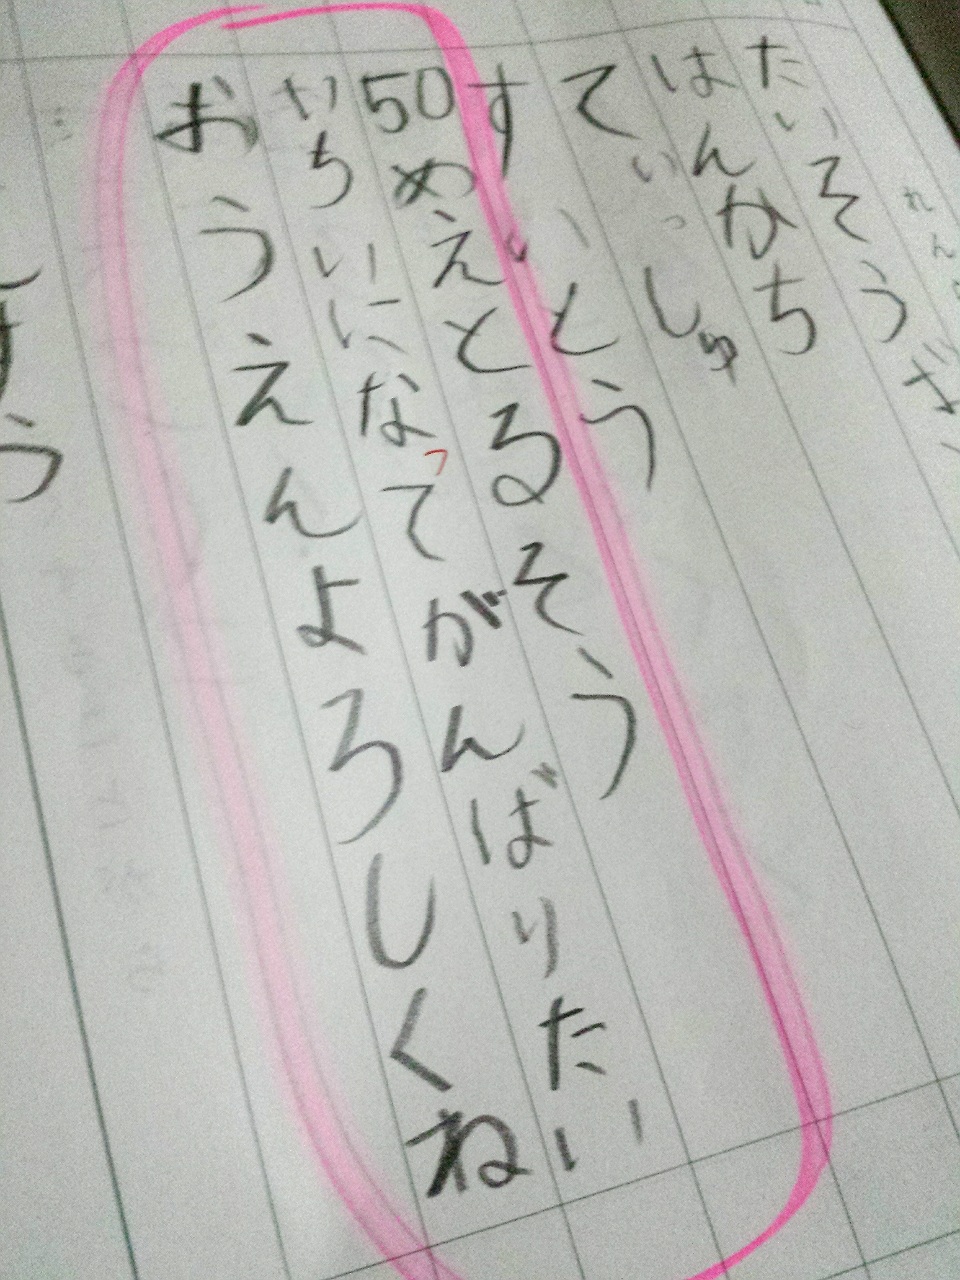 たいそう
はんかち
ていっしゅ
すいとう
50めえとるそう
いちいになってがんばりたい
おうえんよろしくね